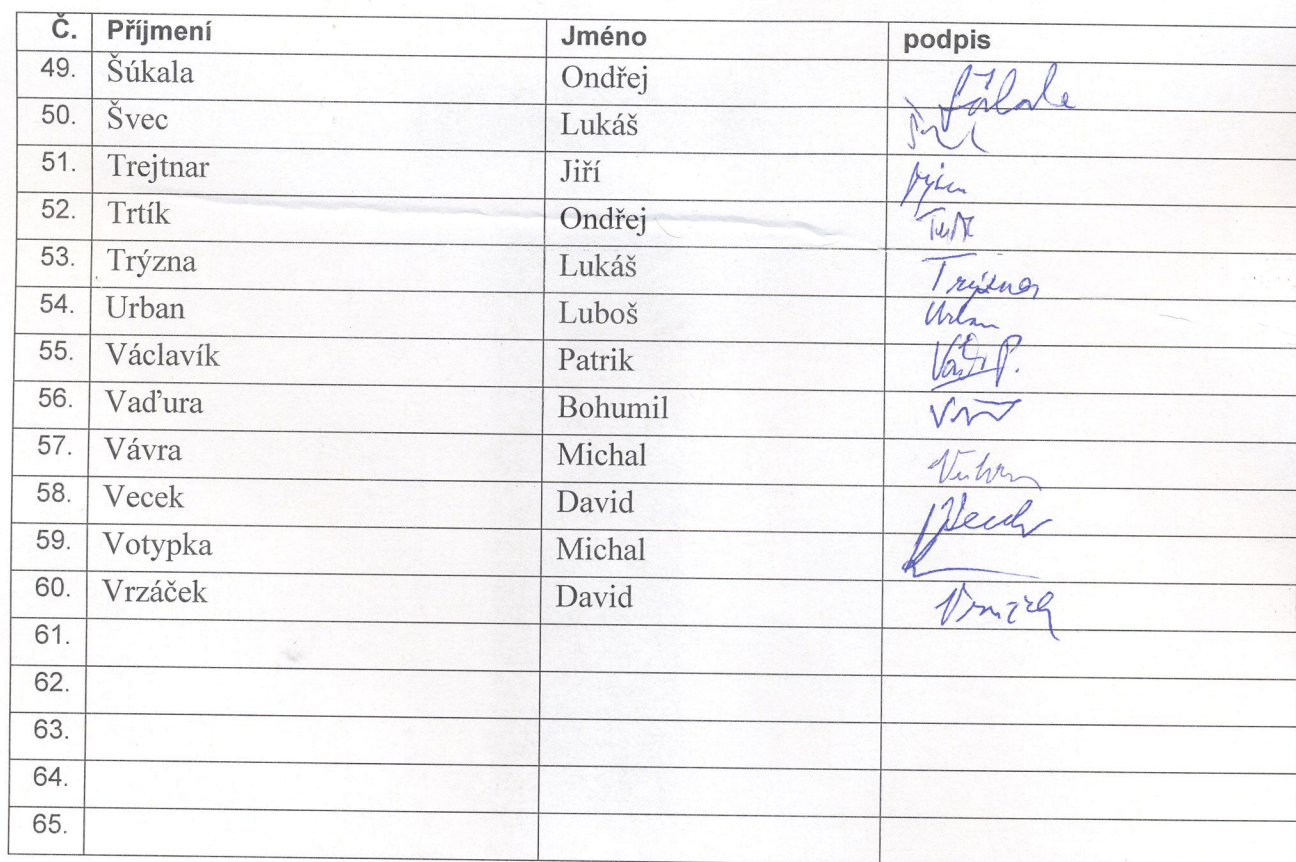 Č. Příjmení Jméno podpis
49. Šúkala Ondřej
50. Švec Lukáš
51. Trejtnar Jiří
52. Trtík Ondřej
53. Trýzna Lukáš Trýzna
54. Urban Luboš Urban
55. Václavík Patrik
56. Vaďura Bohumil
57. Vávra Michal
58. Vecek David
59. Votypka Michal
60. Vrzáček David
61.
62.
63.
64.
65.